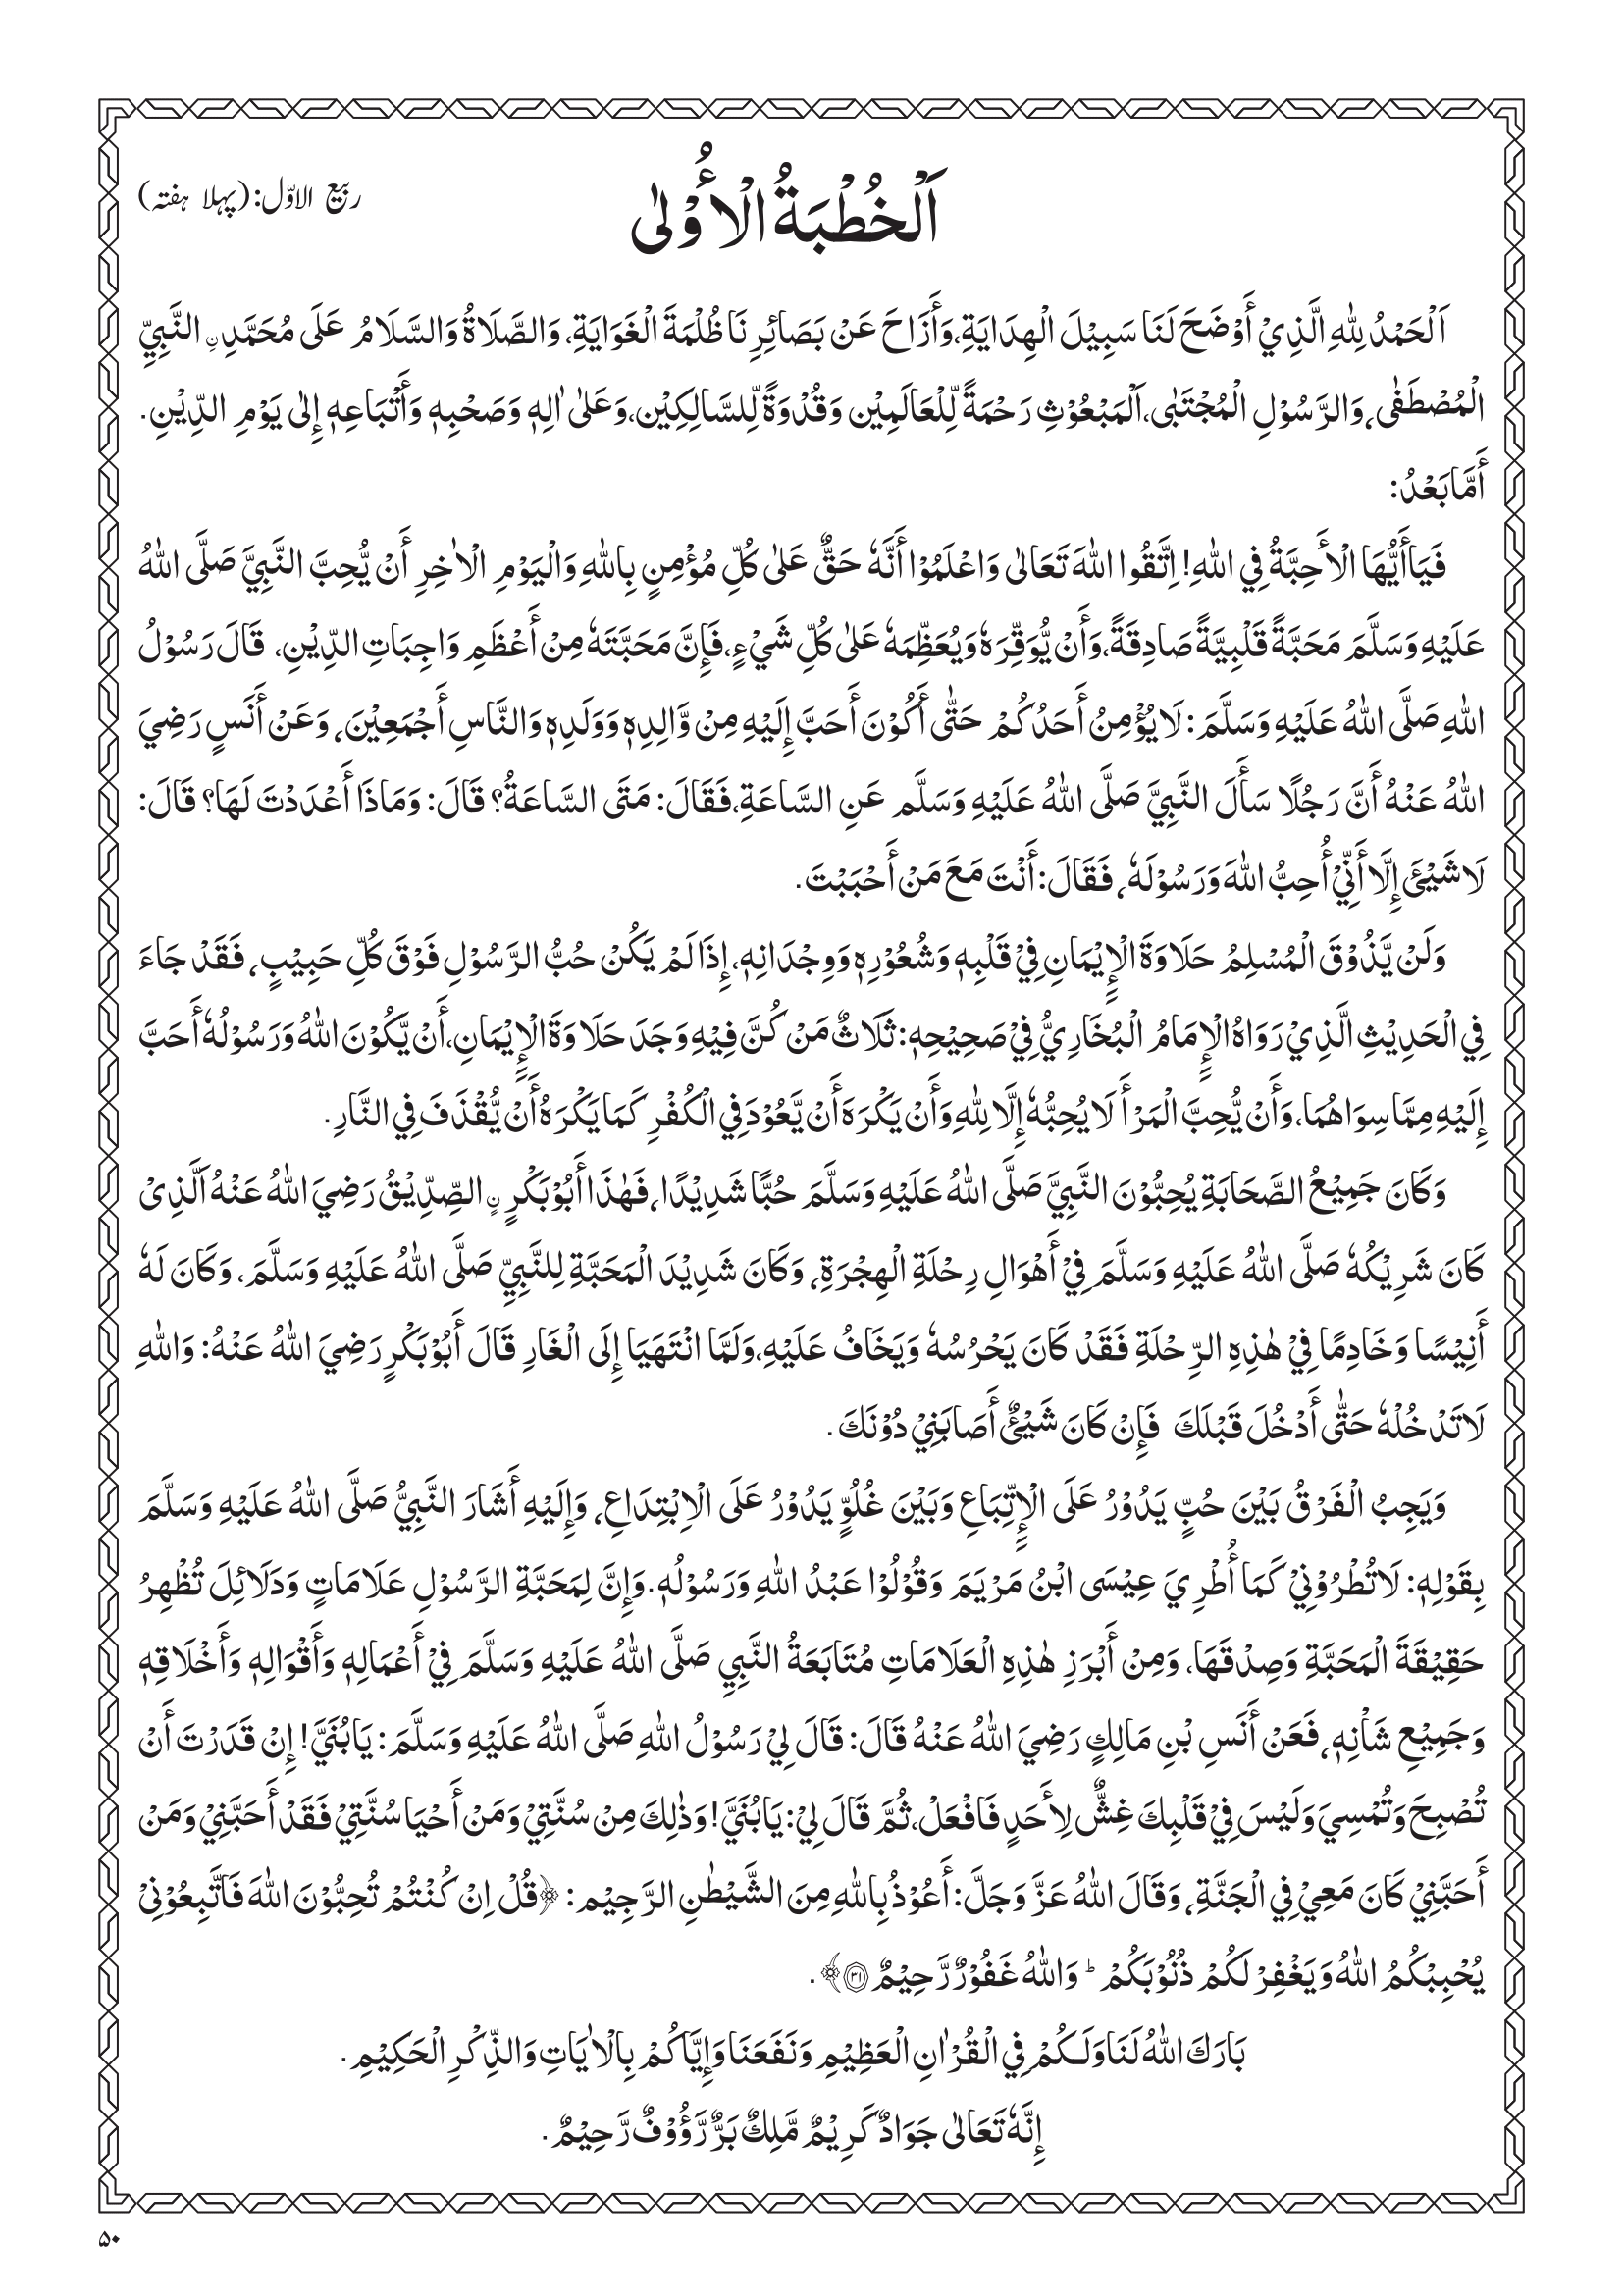 ربیع الاوّل:(پہلا ہفتہ)
اَلْخُطْبَةُ الْأُوْلٰى
اَلْحَمْدُ لِلّٰهِ الَّذِيْ أَوْضَحَ لَنَا سَبِيْلَ الْهِدَايَةِ،وَأَزَاحَ عَنْ بَصَائِرِنَا ظُلْمَةَ الْغَوَايَةِ، وَالصَّلَاةُ وَالسَّلَامُ عَلَى مُحَمَّدِ نِ النَّبِيِّ
الْمُصْطَفٰى، وَالرَّسُوْلِ الْمُجْتَبٰى،اَلْمَبْعُوْثِ رَحْمَةً لِّلْعَالَمِيْن وَقُدْوَةً لِّلسَّالِكِيْن،وَعَلٰى اٰلِهٖ وَصَحْبِهٖ وَأَتْبَاعِهٖ إِلٰى يَوْمِ الدِّيْنِ.
أَمَّا بَعْدُ:
فَيَا أَيُّهَا الْأَحِبَّةُ فِي اللّٰهِ! اِتَّقُوا اللّٰهَ تَعَالٰى وَاعْلَمُوْا أَنَّهٗ حَقٌّ عَلٰى كُلِّ مُؤْمِنٍ بِاللّٰهِ وَالْيَوْمِ الْاٰخِرِ أَنْ يُّحِبَّ النَّبِيَّ صَلَّى اللّٰهُ
عَلَيْهِ وَسَلَّمَ مَحَبَّةً قَلْبِيَّةً صَادِقَةً،وَأَنْ يُّوَقِّرَهٗ وَيُعَظِّمَهٗ عَلٰى كُلِّ شَيْءٍ،فَإِنَّ مَحَبَّتَهٗ مِنْ أَعْظَمِ وَاجِبَاتِ الدِّيْنِ، قَالَ رَسُوْلُ
اللّٰهِ صَلَّى اللّٰهُ عَلَيْهِ وَسَلَّمَ: لَا يُؤْمِنُ أَحَدُكُمْ حَتّٰى أَكُوْنَ أَحَبَّ إِلَيْهِ مِنْ وَّالِدِهٖ وَوَلَدِهٖ وَالنَّاسِ أَجْمَعِيْنَ، وَعَنْ أَنَسٍ رَضِيَ
اللّٰهُ عَنْهُ أَنَّ رَجُلًا سَأَلَ النَّبِيَّ صَلَّى اللّٰهُ عَلَيْهِ وَسَلَّم عَنِ السَّاعَةِ،فَقَالَ: مَتَى السَّاعَةُ؟ قَالَ: وَمَاذَا أَعْدَدْتَ لَهَا؟ قَالَ:
لَا شَيْئَ إِلَّا أَنِّيْ أُحِبُّ اللّٰهَ وَرَسُوْلَهٗ، فَقَالَ: أَنْتَ مَعَ مَنْ أَحْبَبْتَ.
وَلَنْ يَّذُوْقَ الْمُسْلِمُ حَلَاوَةَ الْإِيْمَانِ فِيْ قَلْبِهٖ وَشُعُوْرِهٖ وَوِجْدَانِهٖ،إِذَا لَمْ يَكُنْ حُبُّ الرَّسُوْلِ فَوْقَ كُلِّ حَبِيْبٍ، فَقَدْ جَاءَ
فِي الْحَدِيْثِ الَّذِيْ رَوَاهُ الْإِمَامُ الْبُخَارِيُّ فِيْ صَحِيْحِهٖ: ثَلَاثٌ مَنْ كُنَّ فِيْهِ وَجَدَ حَلَاوَةَ الْإِيْمَانِ،أَنْ يَّكُوْنَ اللّٰهُ وَرَسُوْلُهٗ أَحَبَّ
إِلَيْهِ مِمَّا سِوَاهُمَا،وَأَنْ يُّحِبَّ الْمَرْأَ لَا يُحِبُّهٗ إِلَّا لِلّٰهِ وَأَنْ يَكْرَهَ أَنْ يَّعُوْدَ فِي الْكُفْرِ كَمَا يَكْرَهُ أَنْ يُّقْذَفَ فِي النَّارِ.
وَكَانَ جَمِيْعُ الصَّحَابَةِ يُحِبُّوْنَ النَّبِيَّ صَلَّى اللّٰهُ عَلَيْهِ وَسَلَّمَ حُبًّا شَدِيْدًا، فَهٰذَا أَبُوْ بَكْرٍ نِ الصِّدِّيْقُ رَضِيَ اللّٰهُ عَنْهُ اَلَّذِىْ
كَانَ شَرِيْكُهٗ صَلَّى اللّٰهُ عَلَيْهِ وَسَلَّمَ فِيْ أَهْوَالِ رِحْلَةِ الْهِجْرَةِ، وَكَانَ شَدِيْدَ الْمَحَبَّةِ لِلنَّبِيِّ صَلَّى اللّٰهُ عَلَيْهِ وَسَلَّمَ، وَكَانَ لَهٗ
أَنِيْسًا وَخَادِمًا فِيْ هٰذِهِ الرِّحْلَةِ فَقَدْ كَانَ يَحْرُسُهٗ وَيَخَافُ عَلَيْهِ،وَلَمَّا انْتَهَيَا إِلَى الْغَارِ قَالَ أَبُوْ بَكْرٍ رَضِيَ اللّٰهُ عَنْهُ: وَاللّٰهِ
لَا تَدْخُلْهٗ حَتّٰى أَدْخُلَ قَبْلَكَ فَإِنْ كَانَ شَيْئٌ أَصَابَنِيْ دُوْنَكَ.
وَيَجِبُ الْفَرْقُ بَيْنَ حُبٍّ يَدُوْرُ عَلَى الْإِتِّبَاعِ وَبَيْنَ غُلُوٍّ يَدُوْرُ عَلَى الْاِبْتِدَاعِ، وَإِلَيْهِ أَشَارَ النَّبِيُّ صَلَّى اللّٰهُ عَلَيْهِ وَسَلَّمَ
بِقَوْلِهٖ: لَا تُطْرُوْنِيْ كَمَا أُطْرِيَ عِيْسَى ابْنُ مَرْيَمَ وَقُوْلُوْا عَبْدُ اللّٰهِ وَرَسُوْلُهٖ.وَإِنَّ لِمَحَبَّةِ الرَّسُوْلِ عَلَامَاتٍ وَدَلَائِلَ تُظْهِرُ
حَقِيْقَةَ الْمَحَبَّةِ وَصِدْقَهَا، وَمِنْ أَبْرَزِ هٰذِهِ الْعَلَامَاتِ مُتَابَعَةُ النَّبِيِ صَلَّى اللّٰهُ عَلَيْهِ وَسَلَّمَ فِيْ أَعْمَالِهٖ وَأَقْوَالِهٖ وَأَخْلَاقِهٖ
وَجَمِيْعِ شَأْنِهٖ، فَعَنْ أَنَسِ بْنِ مَالِكٍ رَضِيَ اللّٰهُ عَنْهُ قَالَ: قَالَ لِيْ رَسُوْلُ اللّٰهِ صَلَّى اللّٰهُ عَلَيْهِ وَسَلَّمَ: يَا بُنَيَّ! إِنْ قَدَرْتَ أَنْ
تُصْبِحَ وَتُمْسِيَ وَلَيْسَ فِيْ قَلْبِكَ غِشٌّ لِأَحَدٍ فَافْعَلْ،ثُمَّ قَالَ لِيْ: يَا بُنَيَّ! وَذٰلِكَ مِنْ سُنَّتِيْ وَمَنْ أَحْيَا سُنَّتِيْ فَقَدْ أَحَبَّنِيْ وَمَنْ
أَحَبَّنِيْ كَانَ مَعِيْ فِي الْجَنَّةِ، وَقَالَ اللّٰهُ عَزَّ وَجَلَّ: أَعُوْذُ بِاللّٰهِ مِنَ الشَّيْطٰنِ الرَّجِيْم: ﴿قُلْ اِنْ كُنْتُمْ تُحِبُّوْنَ اللّٰهَ فَاتَّبِعُوْنِىْ
يُحْبِبْكُمُ اللّٰهُ وَيَغْفِرْ لَكُمْ ذُنُوْبَكُمْ ؕ وَاللّٰهُ غَفُوْرٌ رَّحِيْمٌ ۝۳۱﴾.
بَارَكَ اللّٰهُ لَنَا وَلَكُمْ فِي الْقُرْاٰنِ الْعَظِيْمِ وَنَفَعَنَا وَإِيَّاكُمْ بِالْاٰيَاتِ وَالذِّكْرِ الْحَكِيْمِ.
إِنَّهٗ تَعَالٰى جَوَادٌ كَرِيْمٌ مَّلِكٌ بَرٌّ رَّؤُوْفٌ رَّحِيْمٌ.
۵۰